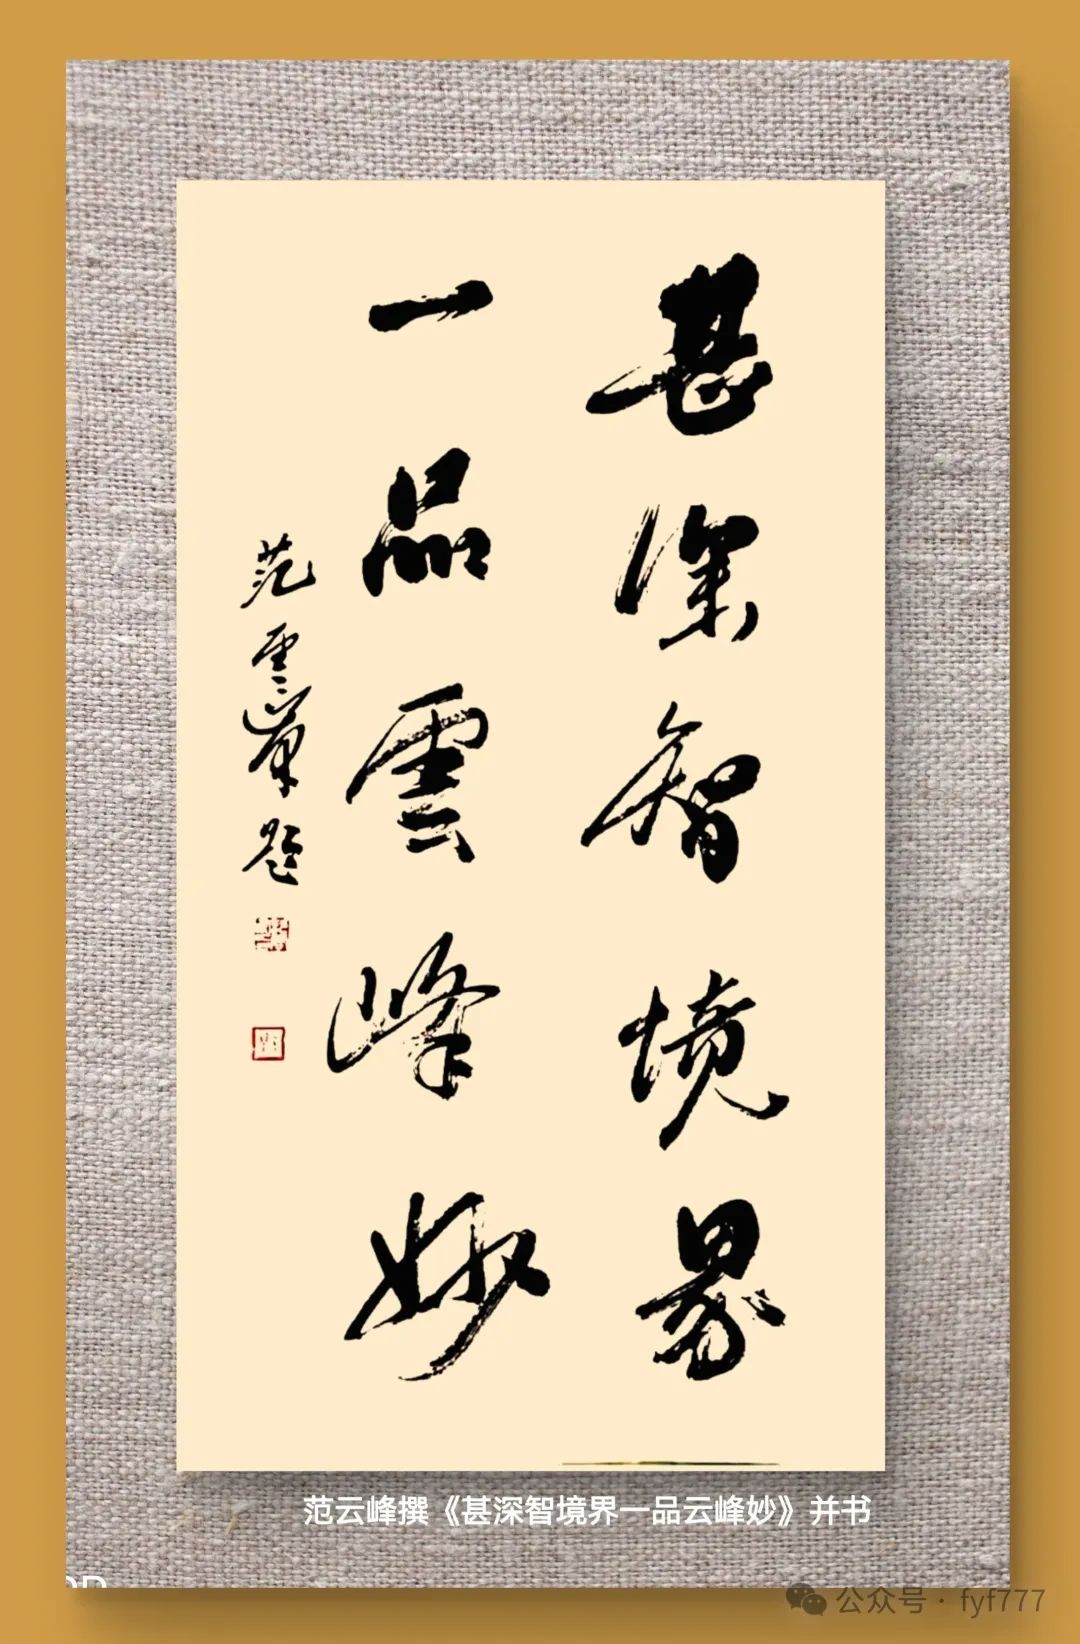 甚深智境界
一品雲峰妙
范雲峯題
范云峰撰《甚深智境界一品云峰妙》并书
公众号·fyf777